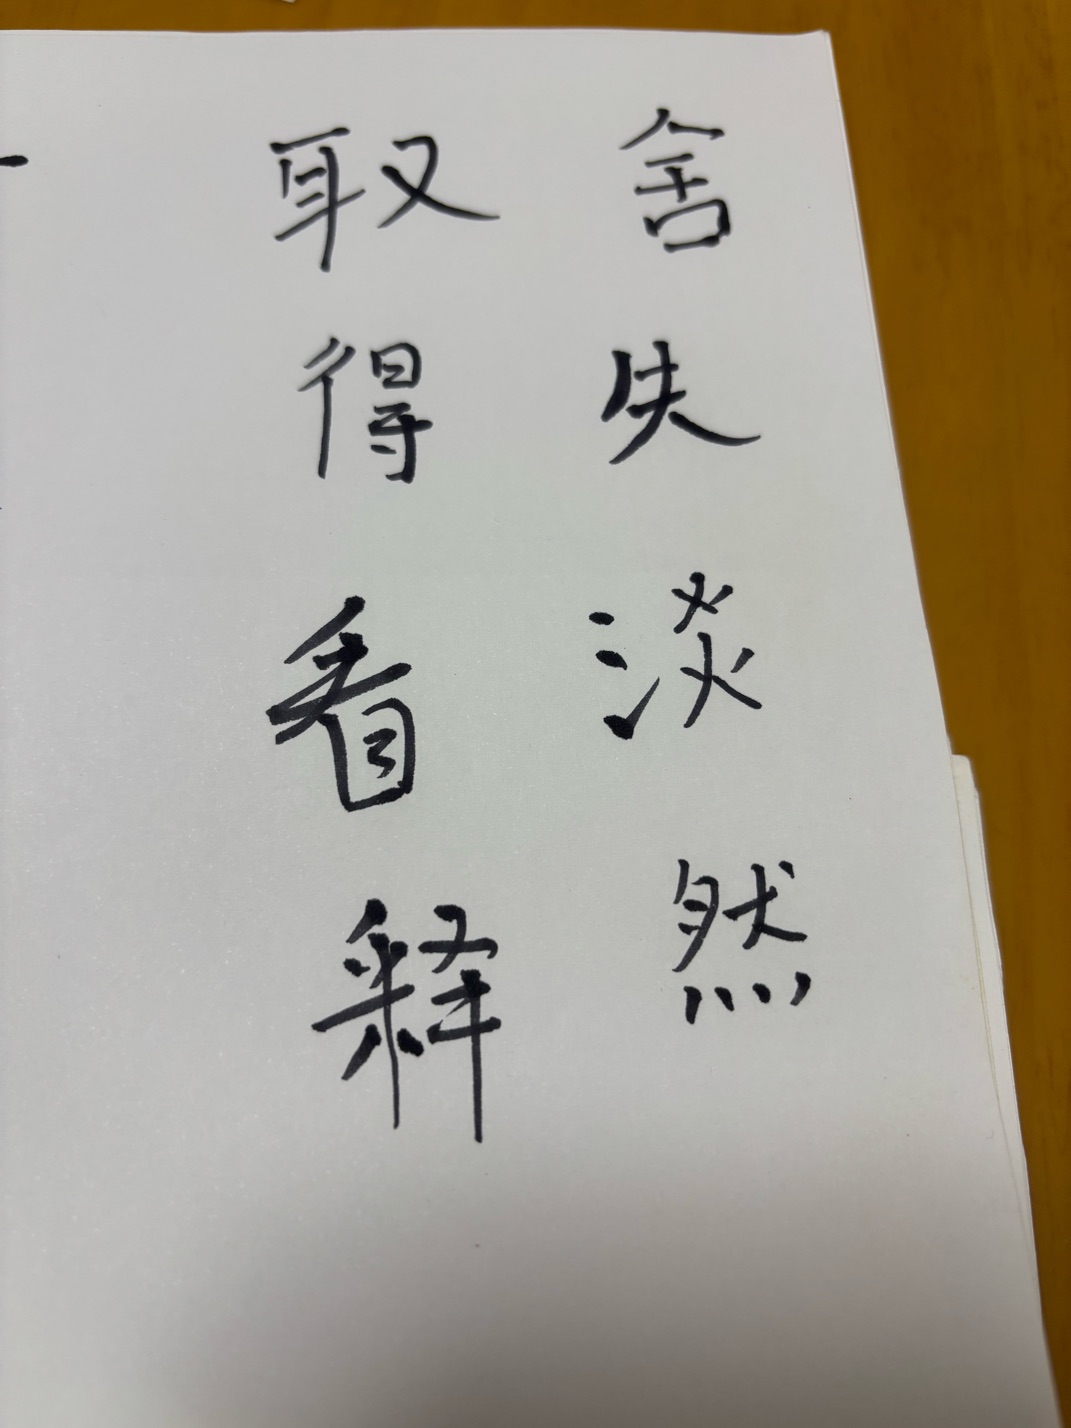 舍失淡然
取得看释